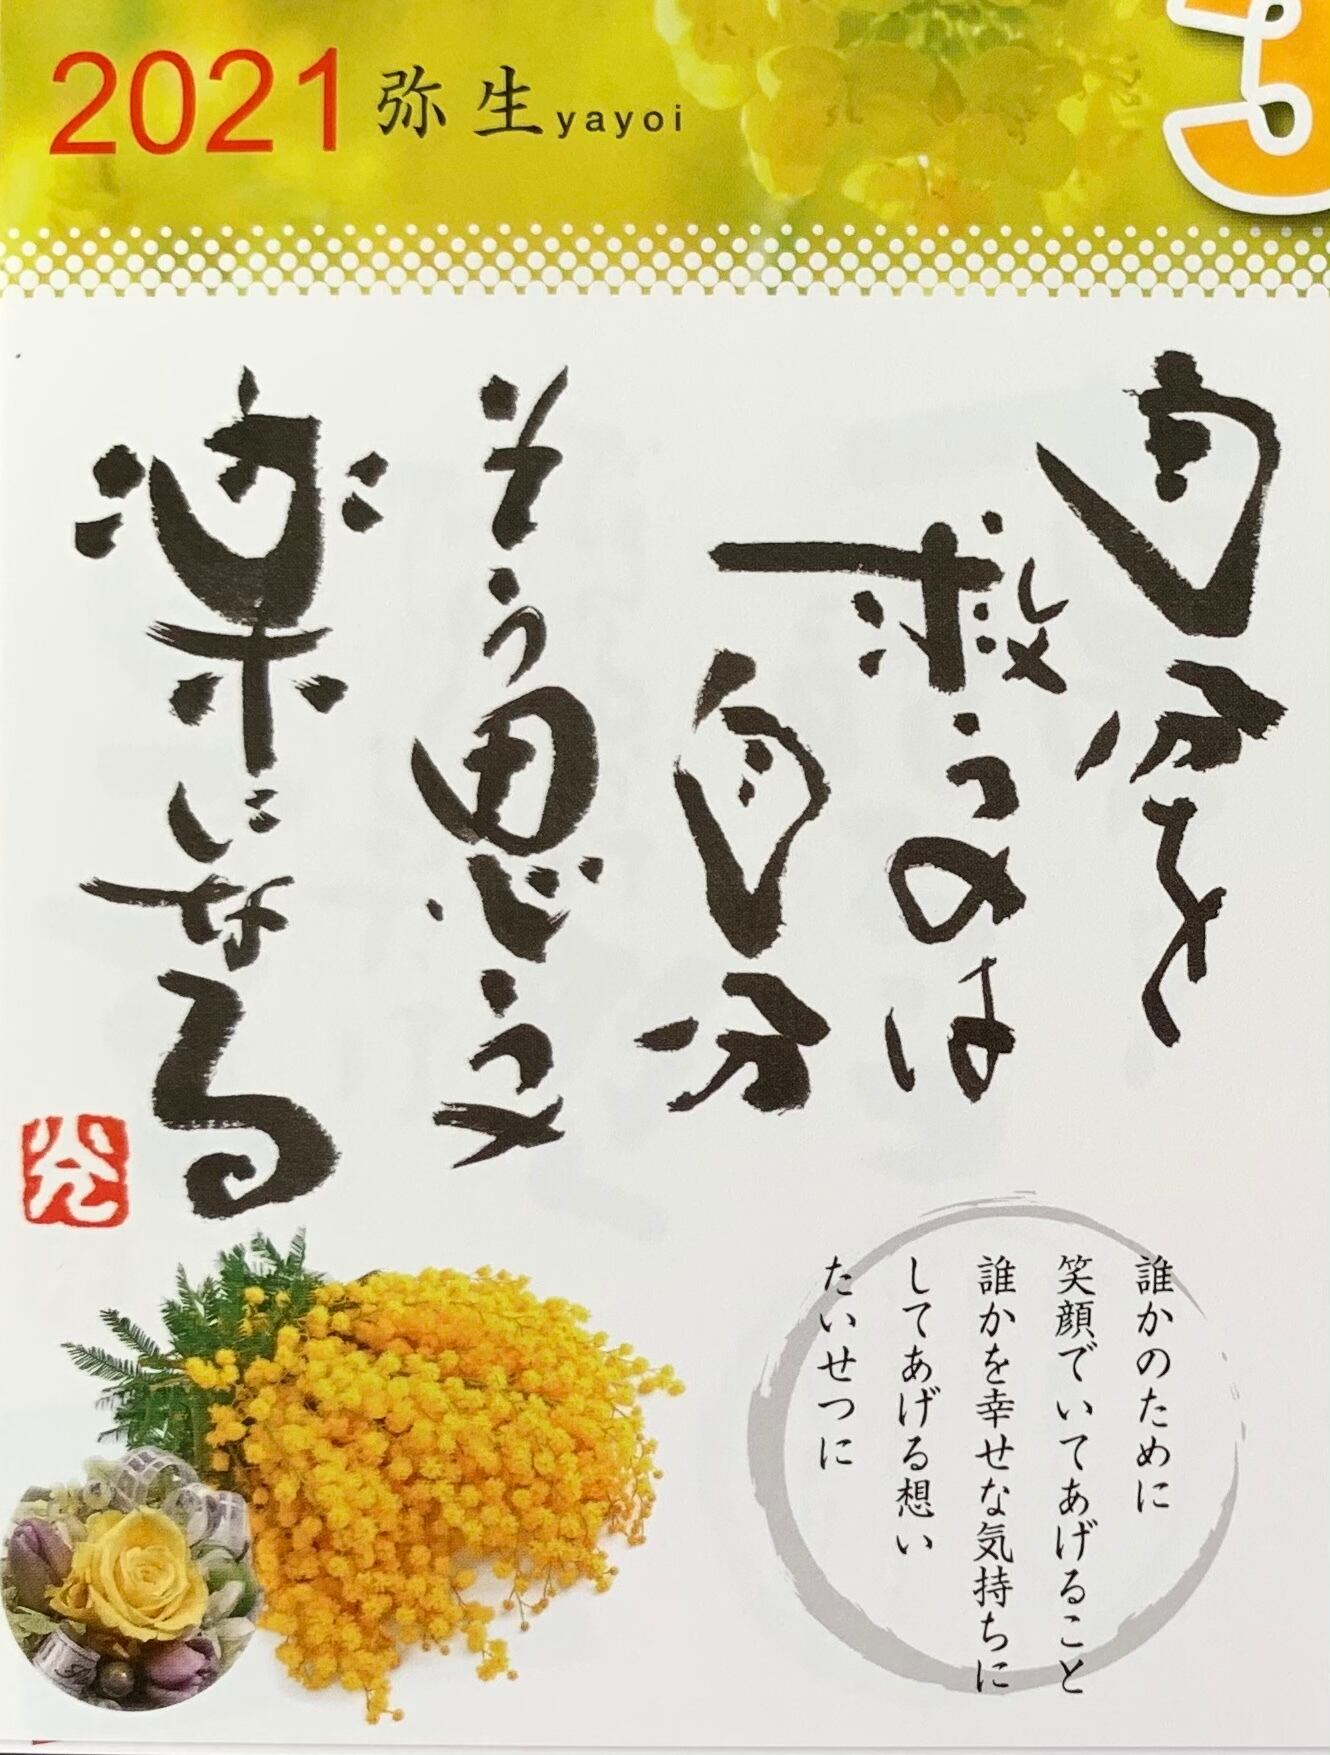 2021 弥生 yayoi
3
自分を
救うのは
自分
そう思うと
楽になる
誰かのために
笑顔でいてあげること
誰かを幸せな気持ちに
してあげる想い
たいせつに